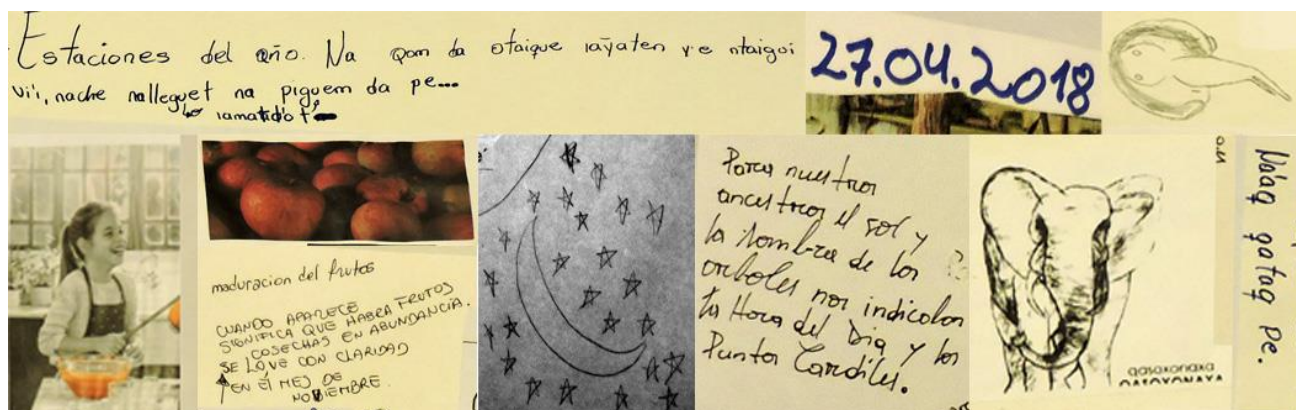 Estaciones del año. Na qom da otaique iaỹaten ỹe ntaigui
vi'i, nache nalleguet na piguem da pe...
lo iamatdot
27.04.2018
maduracion del frutos
CUANDO APARECE
SIGNIFICA QUE HABRA FRUTOS
COSECHAS EN ABUNDANCIA.
SE LO VE CON CLARIDAD
EN EL MES DE
NOVIEMBRE.
Para nuestros
ancestros el sol y
la sombra de los
arboles nos indicaban
la Hora del Dia y los
Puntos Cardiles.
qasoxonaxa
QASOXONAXA
Na'aq qataq pe.